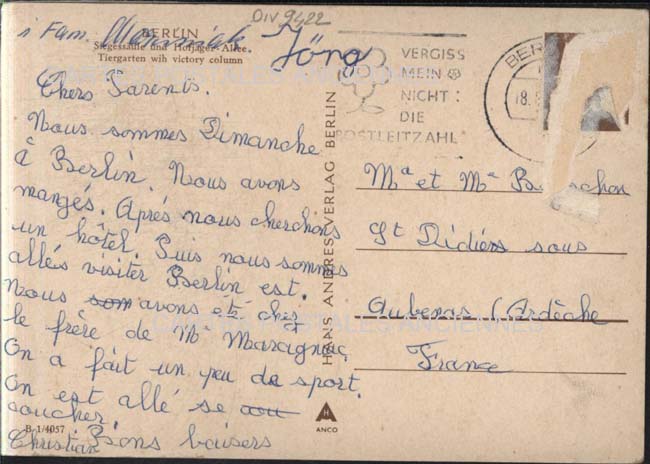 DIV 9422
BERLIN
i Fam. Jörg
Siegessäule und Hofjäger-Allee
Tiergarten wih victory column
Chers Parents.
Nous sommes Dimanche
à Berlin. Nous avons
mangés. Après nous cherchons
un hôtel. Puis nous sommes
allés visiter Berlin est.
Nous som avons été chez
le frère de Mr Marcignac
On a fait un peu de sport.
On est allé se cou
coucher.
B 1/4057
Christian Bons baisers
HANS ANDRES VERLAG BERLIN
H
ANCO
VERGISS
MEIN
NICHT:
DIE
POSTLEITZAHL
BER
18.
Mr et Me
St Didiers sous
Aubenas (Ardèche
France
CARTES POSTALES ANCIENNES